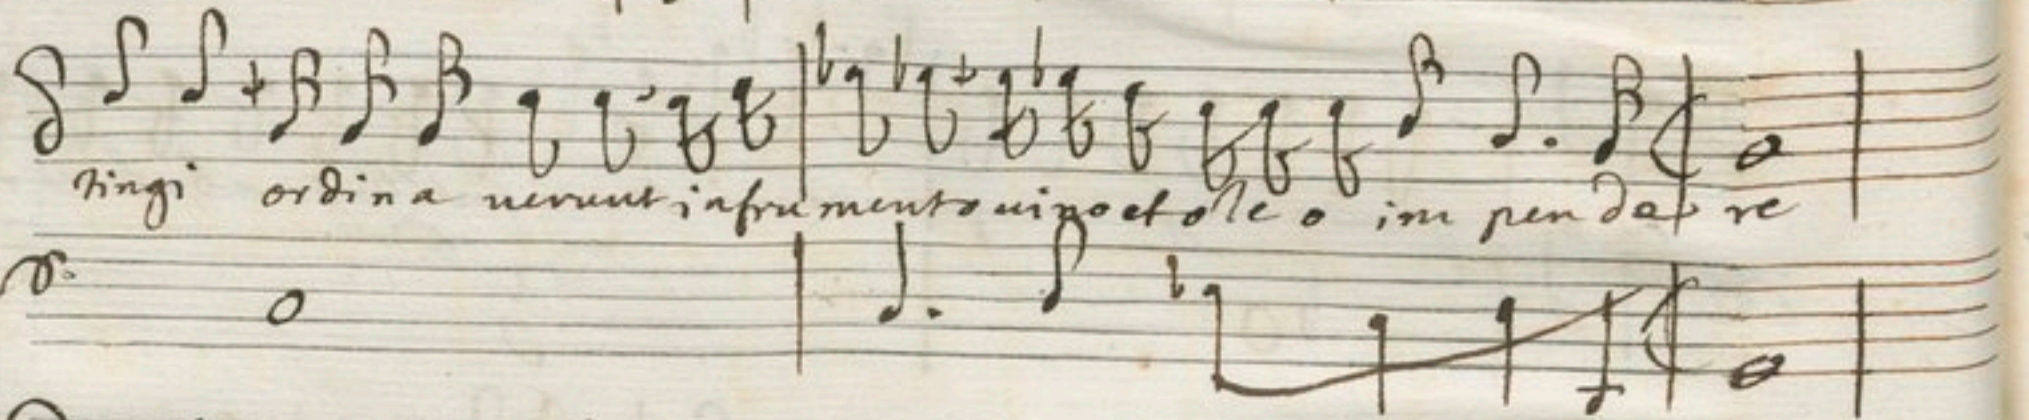 tingi ordina uerunt in frumento uino et oleo impendere